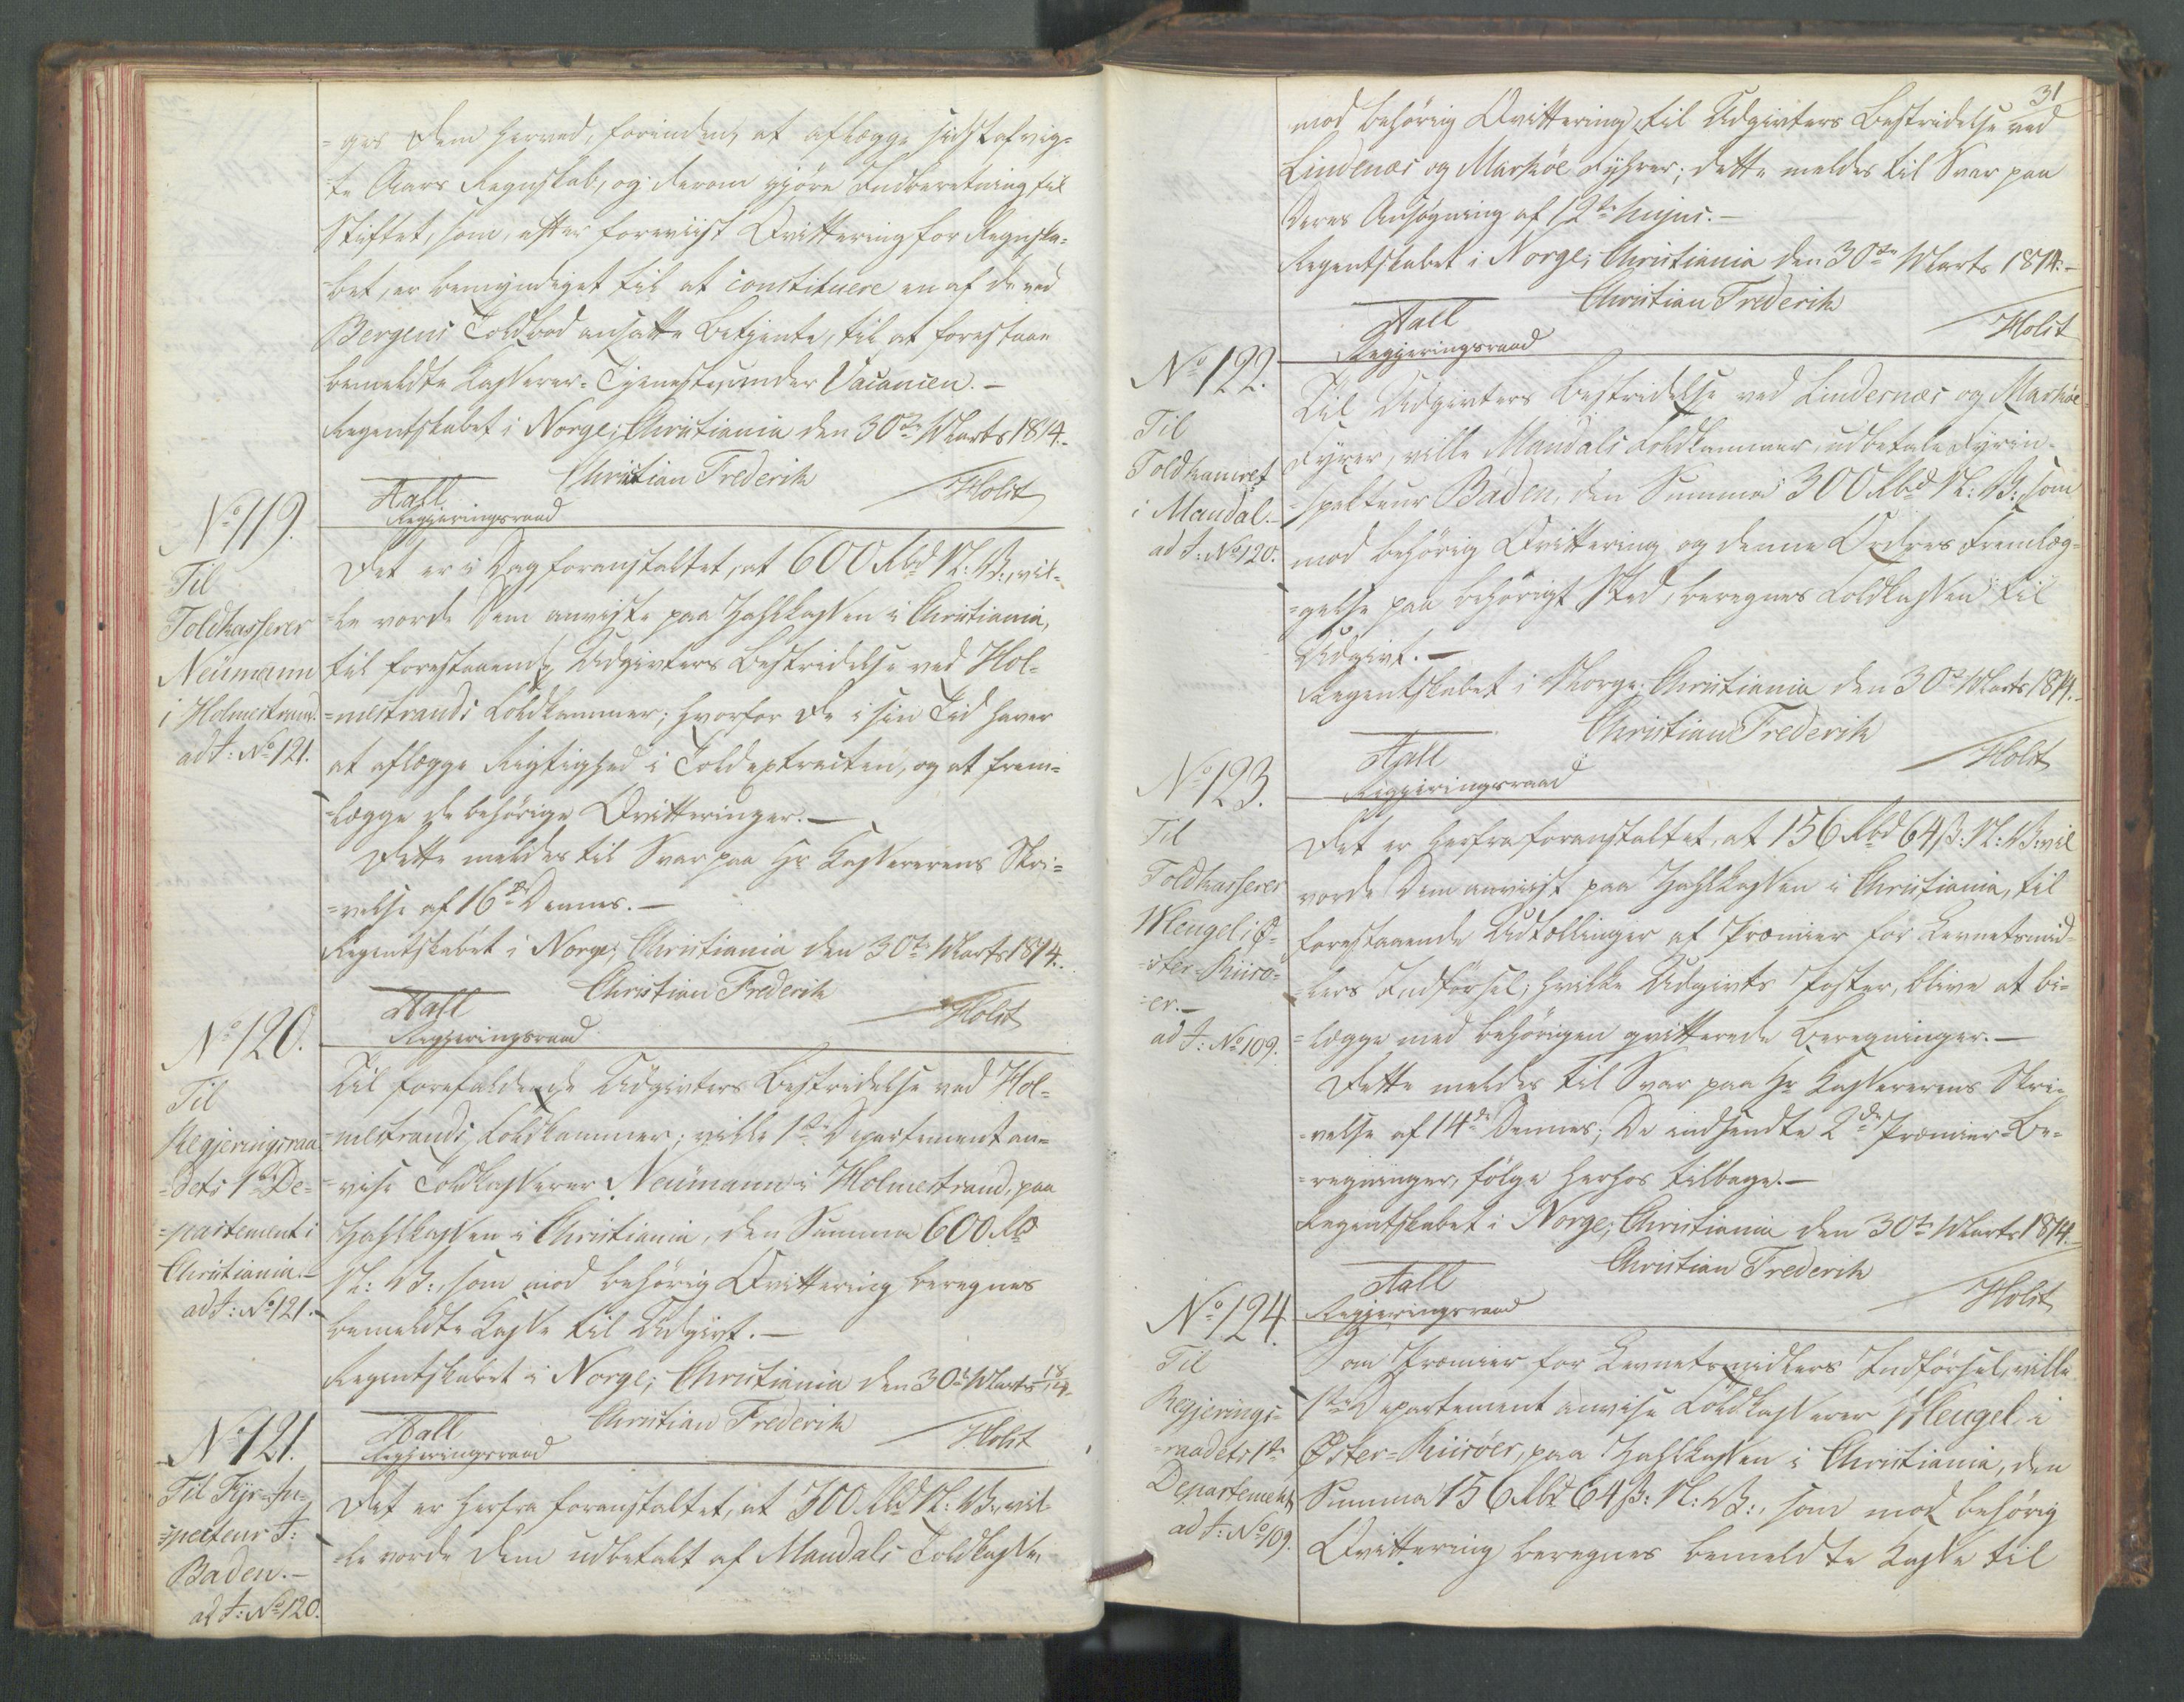 =ges Dem herved, forinden, at aflægge sidstafvig=
=te Aars Regnskab, og derom gjøre Indberetning til
Stiftet, som, efter foreviist Qvittering for Regnska=
=bet, er bemyndiget til at constituere en af de ved
Bergens Toldbod ansatte Betjente, til at forestaae
bemeldte Kasserer-Tjeneste, under Vacancen.—
Regentskabet i Norge; Christiania den 30te Marts 1814.
Christian Frederik
Aall Holst
Regjeringsraad
No 119.
Til
Toldkasserer
Neümann
i Holmestrand.
ad J: No 121.
Det er i Dag foranstaltet, at 600 Rbd N: V:, vil=
=le vorde Dem anviiste paa Zahlkassen i Christiania,
til forestaaende Udgivters Bestridelse ved Hol=
=mestrands Toldkammer; hvorfor De i sin Tid haver
at aflægge Rigtighed i Toldextracten, og at frem=
=lægge de behørige Qvitteringer.—
Dette meldes til Svar paa Hr Kassererens Skri=
=velse af 16de Dennes.—
Regentskabet i Norge; Christiania den 30te Marts 1814.
Christian Frederik
Aall Holst
Regjeringsraad
No 120.
Til
Regjeringsraa=
=dets 1ste De=
=partement i
Christiania.—
ad J: No 121.
Til forefaldende Udgivters Bestridelse ved Hol=
=mestrands Toldkammer; ville 1ste Departement an=
=vise Toldkasserer Neümann i Holmestrand, paa
Zahlkassen i Christiania, den Summa 600 Rbd
N: V:, som mod behørig Qvittering beregnes
bemeldte Kasse til Udgivt.—
Regentskabet i Norge; Christiania den 30te Marts 1814.
Christian Frederik
Aall Holst
Regjeringsraad
No 121.
Til Fyr-In=
=specteur J:
Baden.—
ad J: No 120.
Det er herfra foranstaltet, at 300 Rbd N: V:, vil=
=le vorde Dem udbetalt af Mandals Toldkasse,
31
mod behørig Qvittering, til Udgivters Bestridelse ved
Lindenæs og Markøe Fyhrer; dette meldes til Svar paa
Deres Ansøgning af 12te hujus.—
Regentskabet i Norge; Christiania den 30te Marts 1814.—
Christian Frederik
Aall Holst
Regjeringsraad
No 122.
Til
Toldkamret
i Mandal.—
ad J: No 120.
Til Udgivters Bestridelse ved Lindernæs og Markøe=
Fyrer, ville Mandals Toldkammer, udbetale Fyrin=
=spekteur Baden, den Summa 300 Rbd N: V:, som
mod behørig Qvittering og denne Ordres Fremlæg=
=gelse paa behørigt Sted, beregnes Toldkassen til
Udgivt.—
Regentskabet i Norge; Christiania den 30te Marts 1814.
Christian Frederik
Aall Holst
Regjeringsraad
No 123.
Til
Toldkasserer
Mengel i Ø=
=ster-Riiso=
=er.—
ad J: No 109.
Det er herfra foranstaltet, at 156 Rbd 64 ß: N: V: vil
vorde Dem anviist paa Zahlkassen i Christiania, til
forestaaende Udtællinger af Præmier for Levnetsmid=
=lers Indførsel; hvilke Udgivts Poster, blive at bi=
=lægge med behørigen qvitterede Beregninger.—
Dette meldes til Svar paa Hr Kassererens Skri=
=velse af 14de Dennes; De indsendte 2de Præmier-Be=
=regninger, følge herhos tilbage.—
Regentskabet i Norge; Christiania den 30te Marts 1814.—
Christian Frederik
Aall Holst
Regjeringsraad
No 124.
Til
Regjerings=
=raadets 1ste
Departement
ad J: No 109.
Som Præmier for Levnetsmidlers Indførsel, ville
1ste Departement anvise Toldkasserer Mengel i
Øster-Riisöer, paa Zahlkassen i Christiania, den
Summa 156 Rbd 64 ß: N: V:, som mod behørig
Qvittering beregnes bemeldte Kasse til